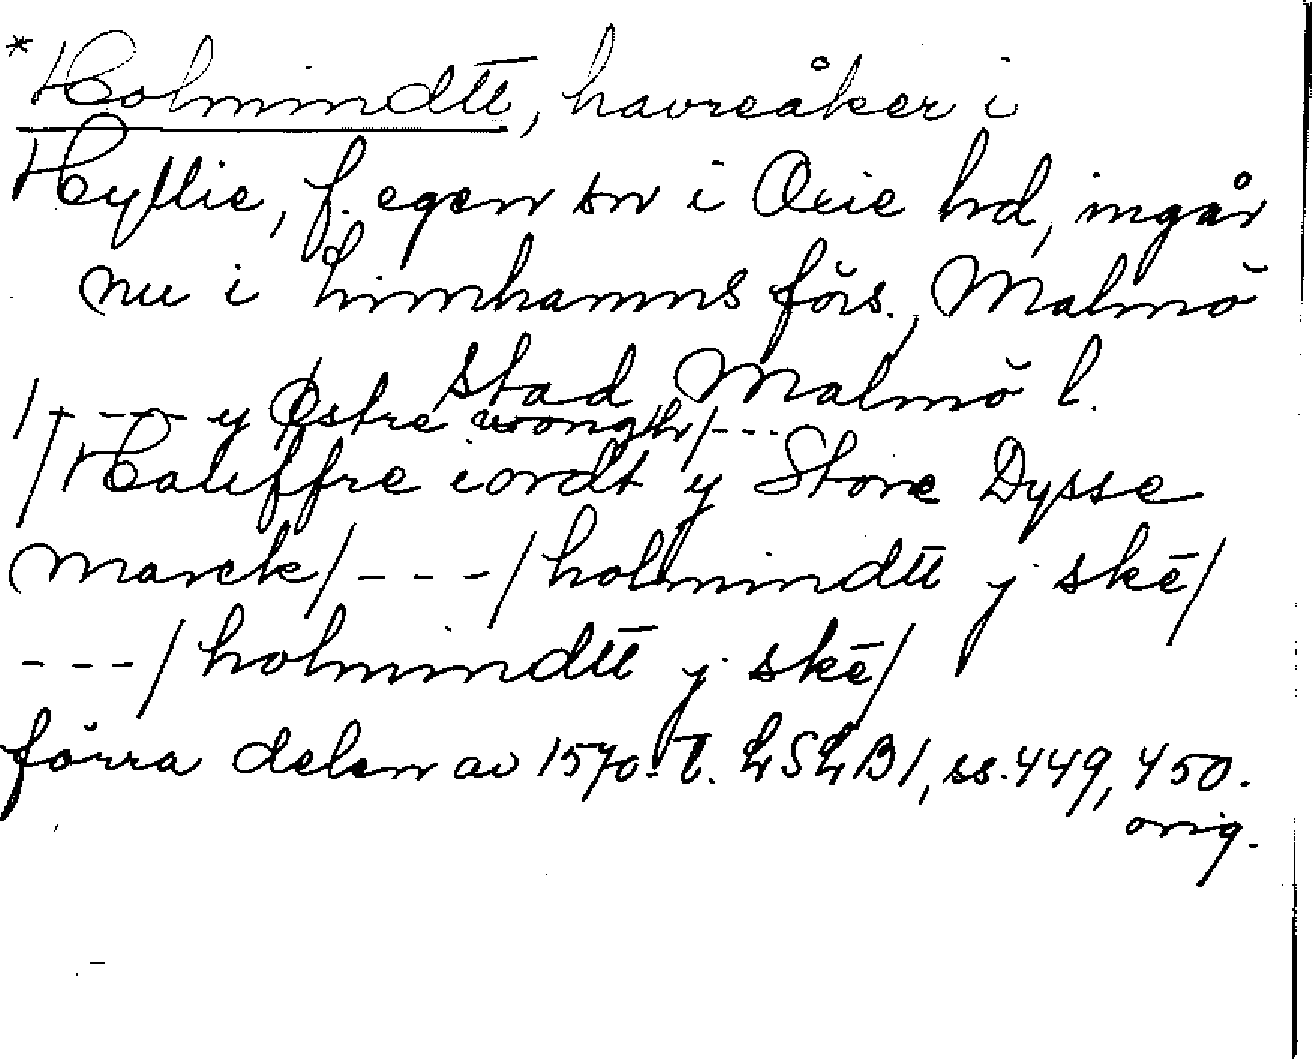 *Holmindtt̄, havreåker i
Hyllie, f. egen sn i Oxie hd, ingår
nu i Limhamns förs., Malmö
stad, Malmö l.
/- - - - y Østre wongh/- - -
/Haluffre iordt y Store Dysse
marck/- - -/holmindtt̄ j skē/
- - -/holmindtt̄ j skē/
förra delen av 1570-t. LSLB1, ss. 449, 450.
orig.